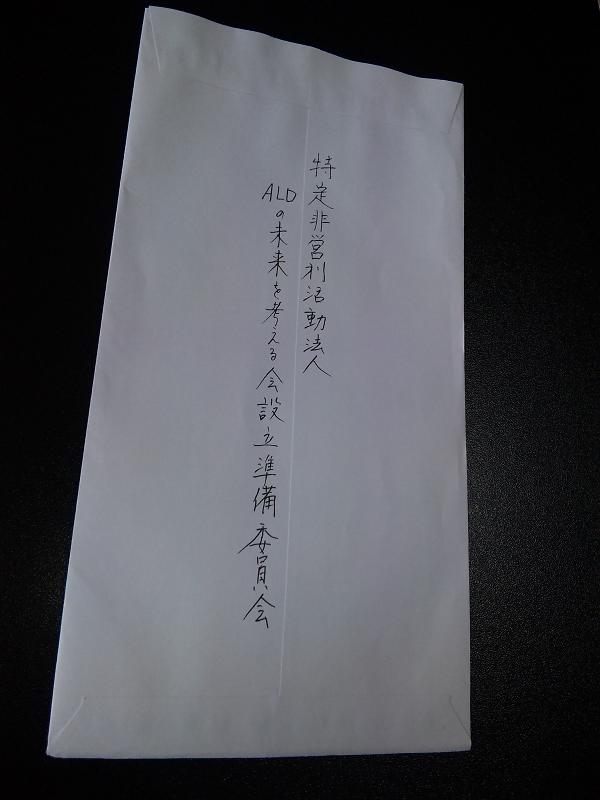 特定非営利活動法人
ALDの未来を考える会設立準備委員会